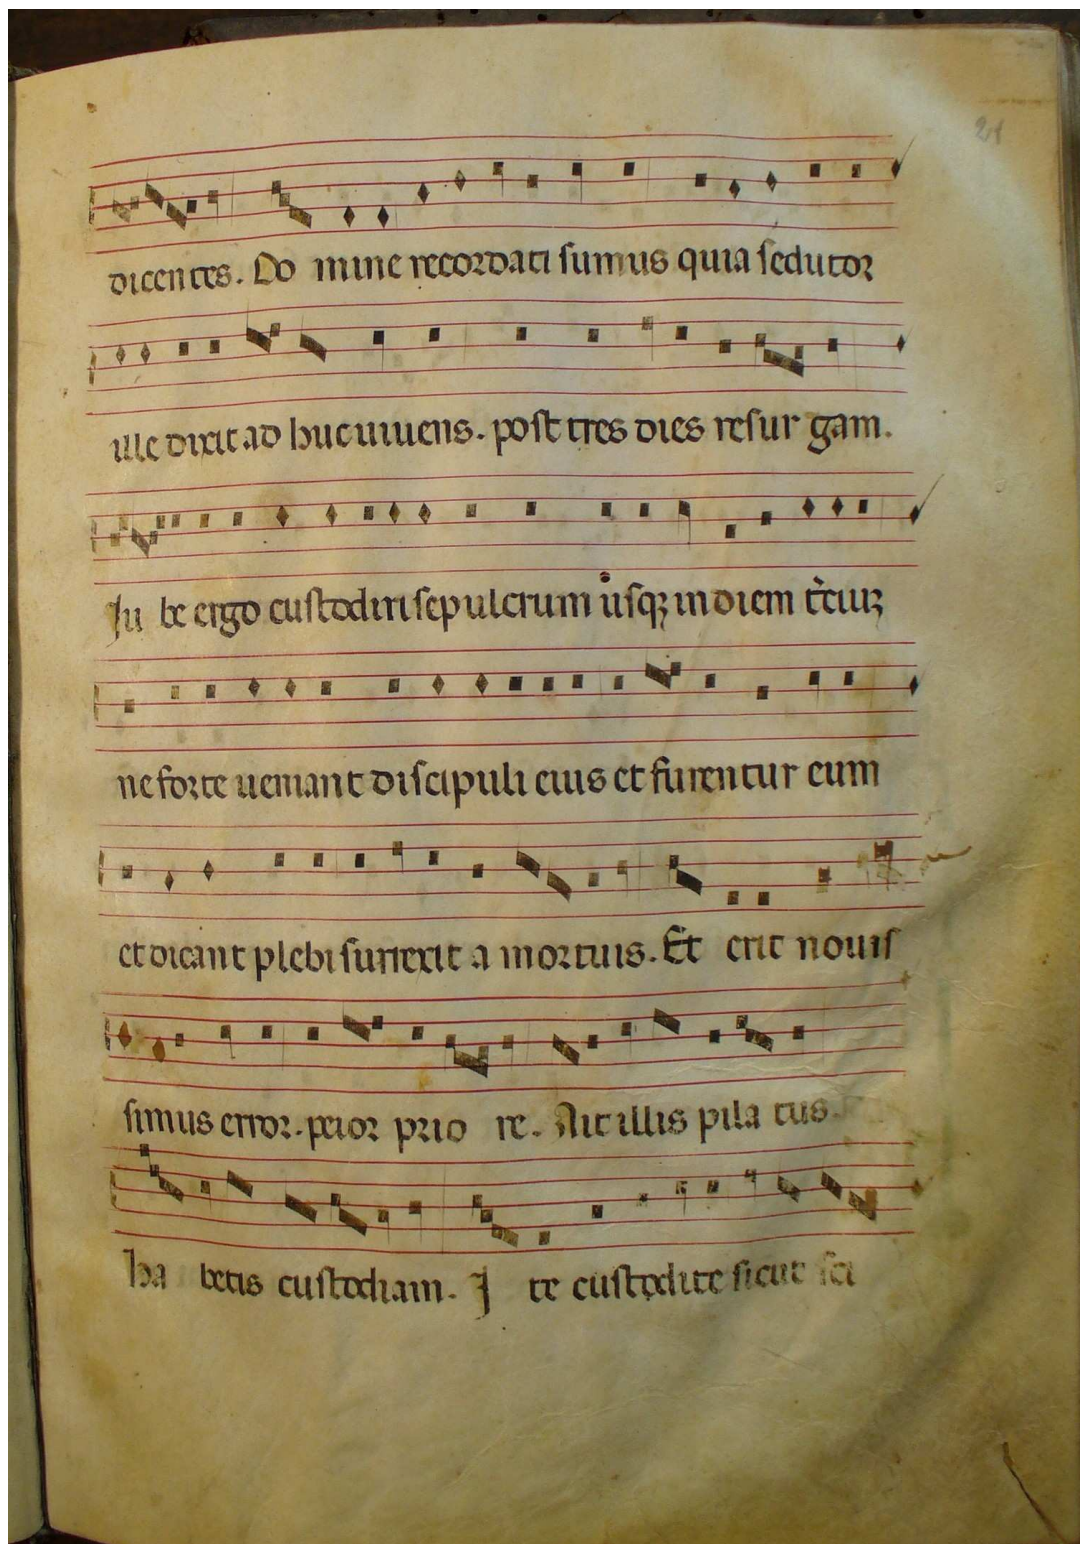 21
dicentes. Do mine recordati sumus quia sedutor
ille dixit ad huc uiuens. post tres dies resur gam.
Iu be ergo custodiri sepulcrum usqꝫ in diem t̾ciuꝫ
ne forte ueniant discipuli eius et furentur eum
et dicant plebi surrexit a mortuis. Et erit nouis
simus error. peior prio re. Ait illis pila tus.
ha betis custodiam. I te custodite sicut sci